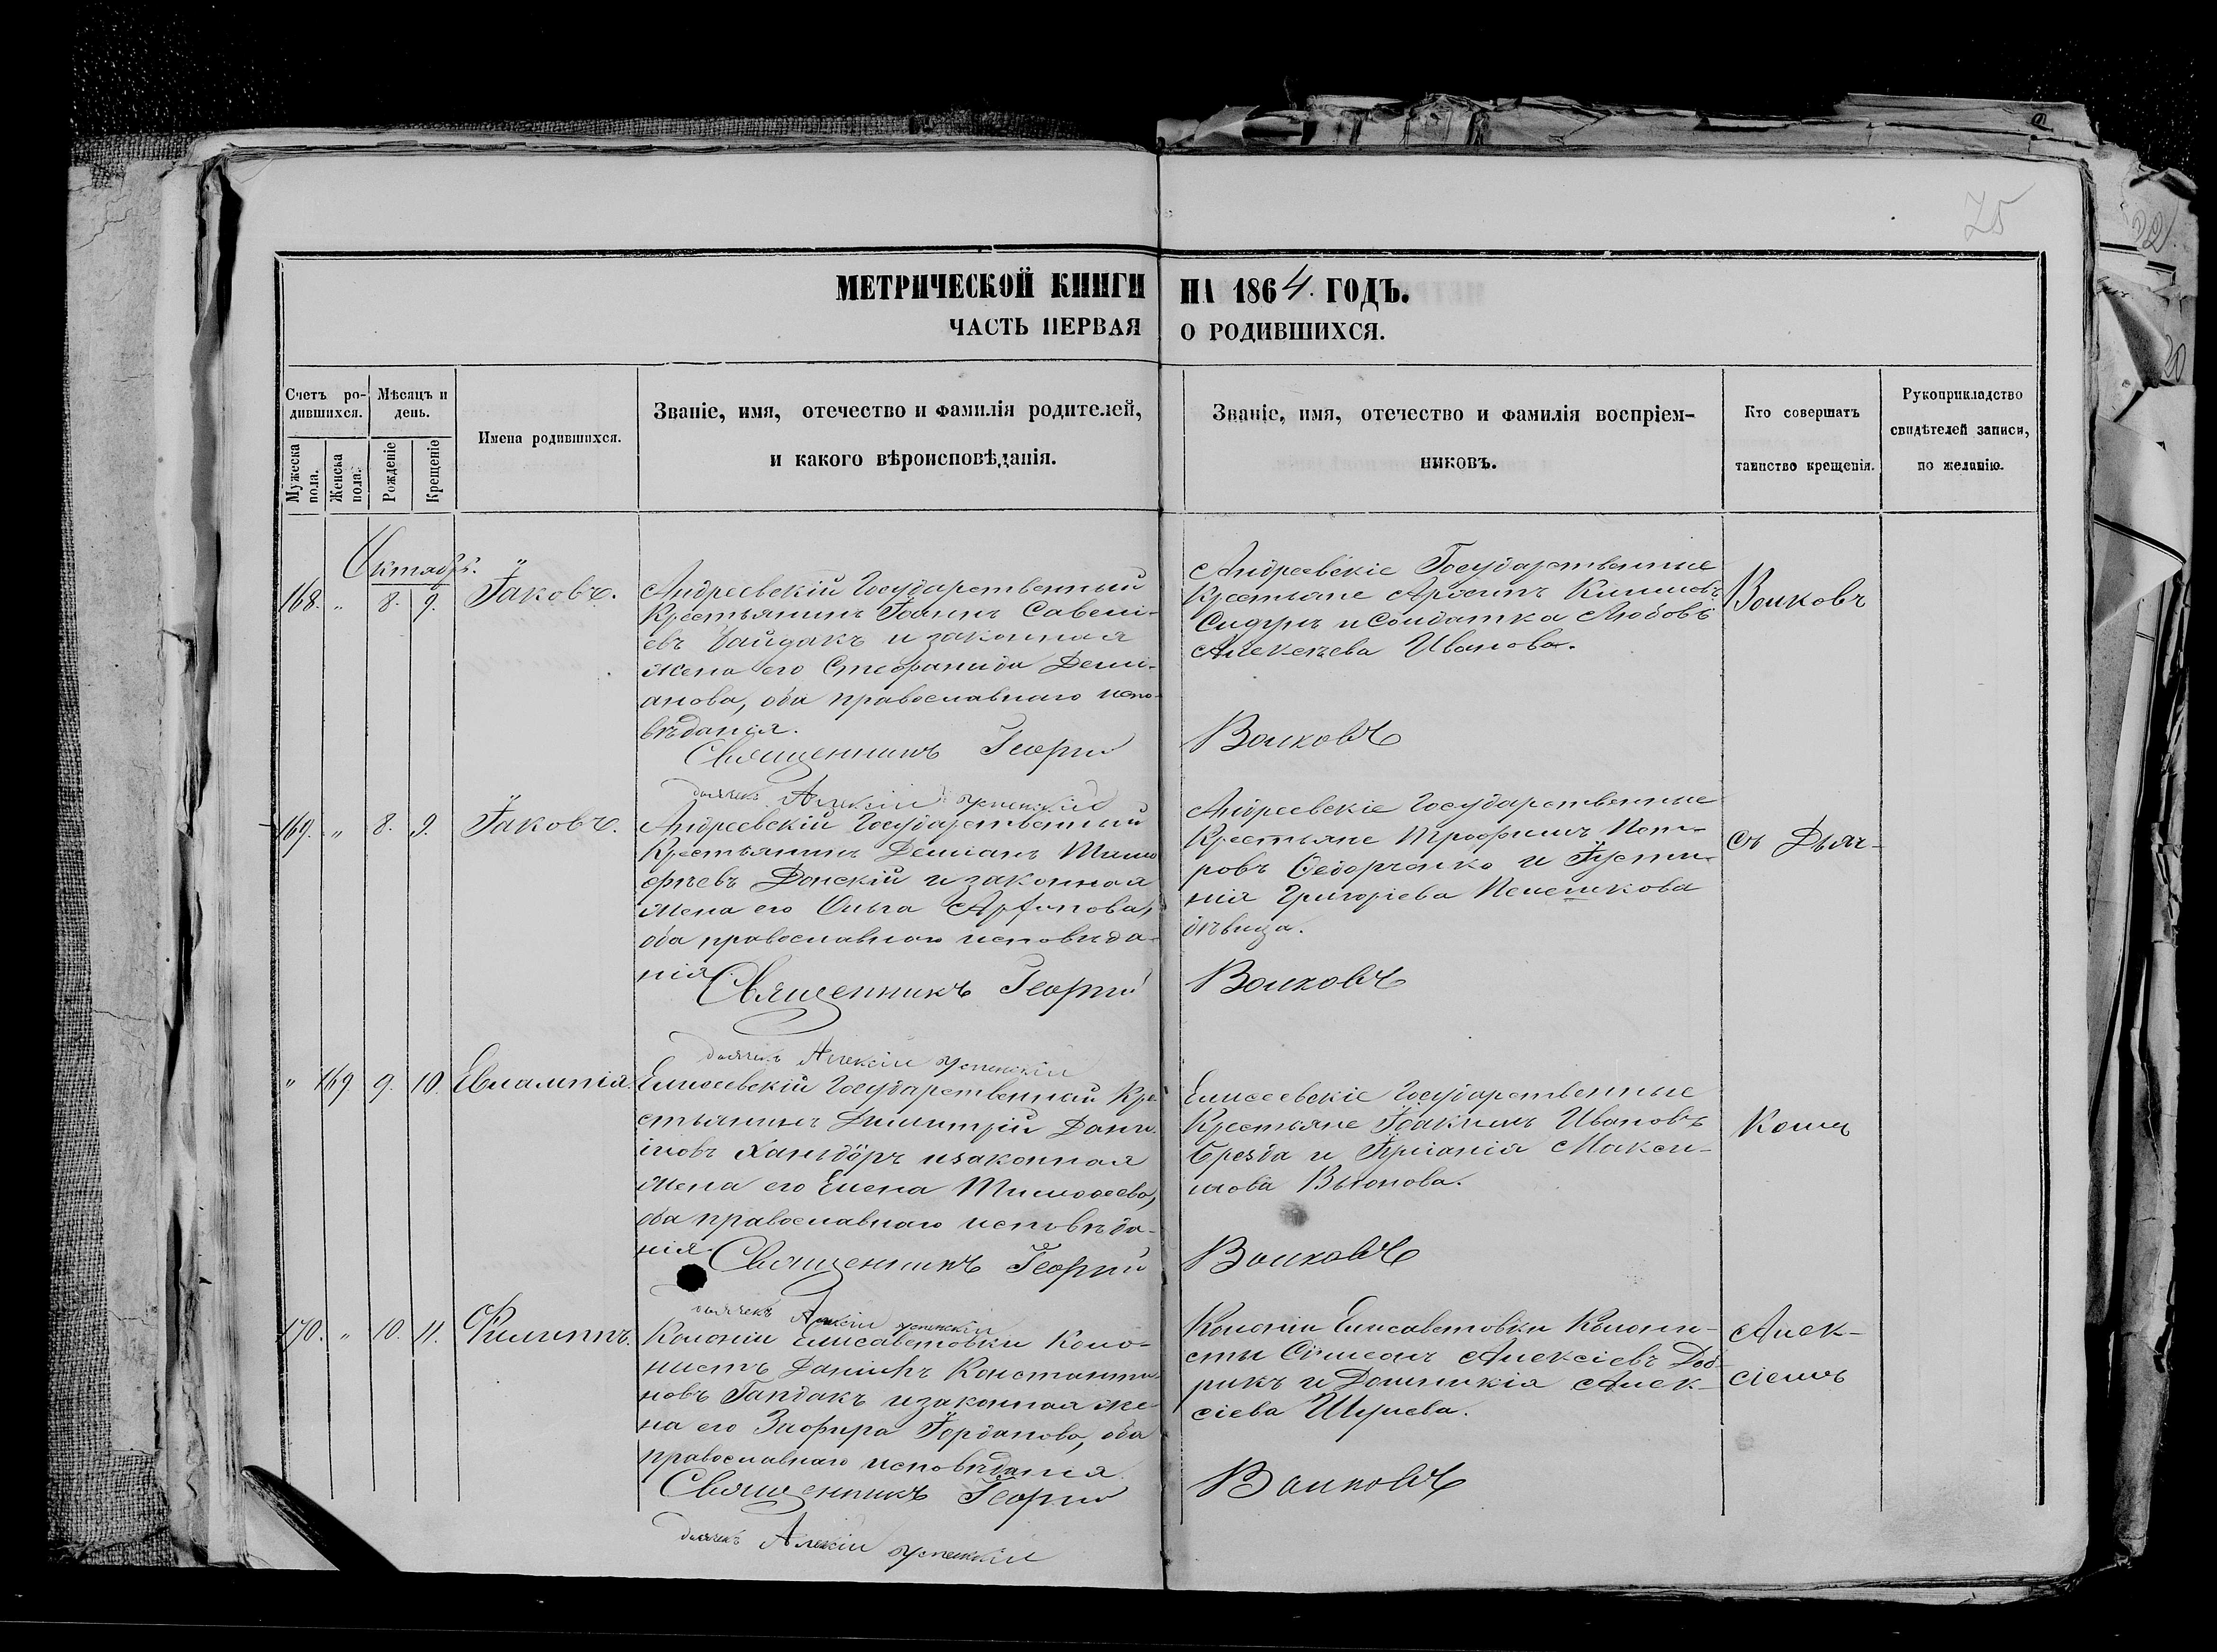 75
МЕТРИЧЕСКОЙ КНИГИ НА 1864. ГОДЪ.
ЧАСТЬ ПЕРВАЯ О РОДИВШИХСЯ.
Счетъ ро-
дившихся.
Мужеска
пола.
Женска
пола.
Мѣсяцъ и
день.
Рожденіе
Крещеніе
Имена родившихся.
Званіе, имя, отечество и фамилія родителей,
и какого вѣроисповѣданія.
Званіе, имя, отечество и фамилія воспріем-
никовъ.
Кто совершатъ
таинство крещенія.
Рукоприкладство
свидѣтелей записи,
по желанію.
Октябрь.
168. " 8. 9. Іаковъ.
Андреевскій Государственный
Крестьянинъ Іоаннъ Савели-
евъ Гайдакъ и законная
жена его Стефанида Деми-
анова, оба православнаго испо-
вѣданія.
Священникъ Георгій Волковъ
дьячекъ Алексій Успенскій
Андреевскіе Государственные
Крестьяне
и Солдатка Любовь
Алексѣева Иванова.
Волковъ
169. " 8. 9. Іаковъ.
Андреевскій Государственный
Крестьянинъ Деміанъ Тимо
фѣевъ Донскій и законная
жена его Ольга
оба православнаго исповѣда-
нія.
Священникъ Георгій Волковъ
дьячекъ Алексій Успенскій
Андреевскіе Государственные
Крестьяне Трофимъ Пет-
ровъ Сидорченко и Іусти-
нія Григоріева
дѣвица.
съ Дьяч-
" 169 9. 10. Евлампія
Елисеевскій Государственный Кре
стьянинъ Димитрій Дани-
иловъ и законная
жена его Елена Тимофеева,
оба православнаго исповѣда-
нія.
Священникъ Георгій Волковъ
дьячекъ Алексій Успенскій
Елисеевскіе Государственные
Крестьяне Іоакимъ Ивановъ
и Іуліанія Макси-
мова Вьюнова.
Комъ
170. " 10. 11. Филиппъ.
Колоніи Елисаветовки Коло-
нистъ Даніилъ Константи
новъ и законная же
на его Іорданова, оба
православнаго исповѣданія.
Священникъ Георгій Волковъ
дьячекъ Алексій Успенскій
Колоніи Елисаветовки Колони-
сты Сѵмеонъ Алексіевъ
и Домникія Алек-
сіева
Алек-
сіемъ